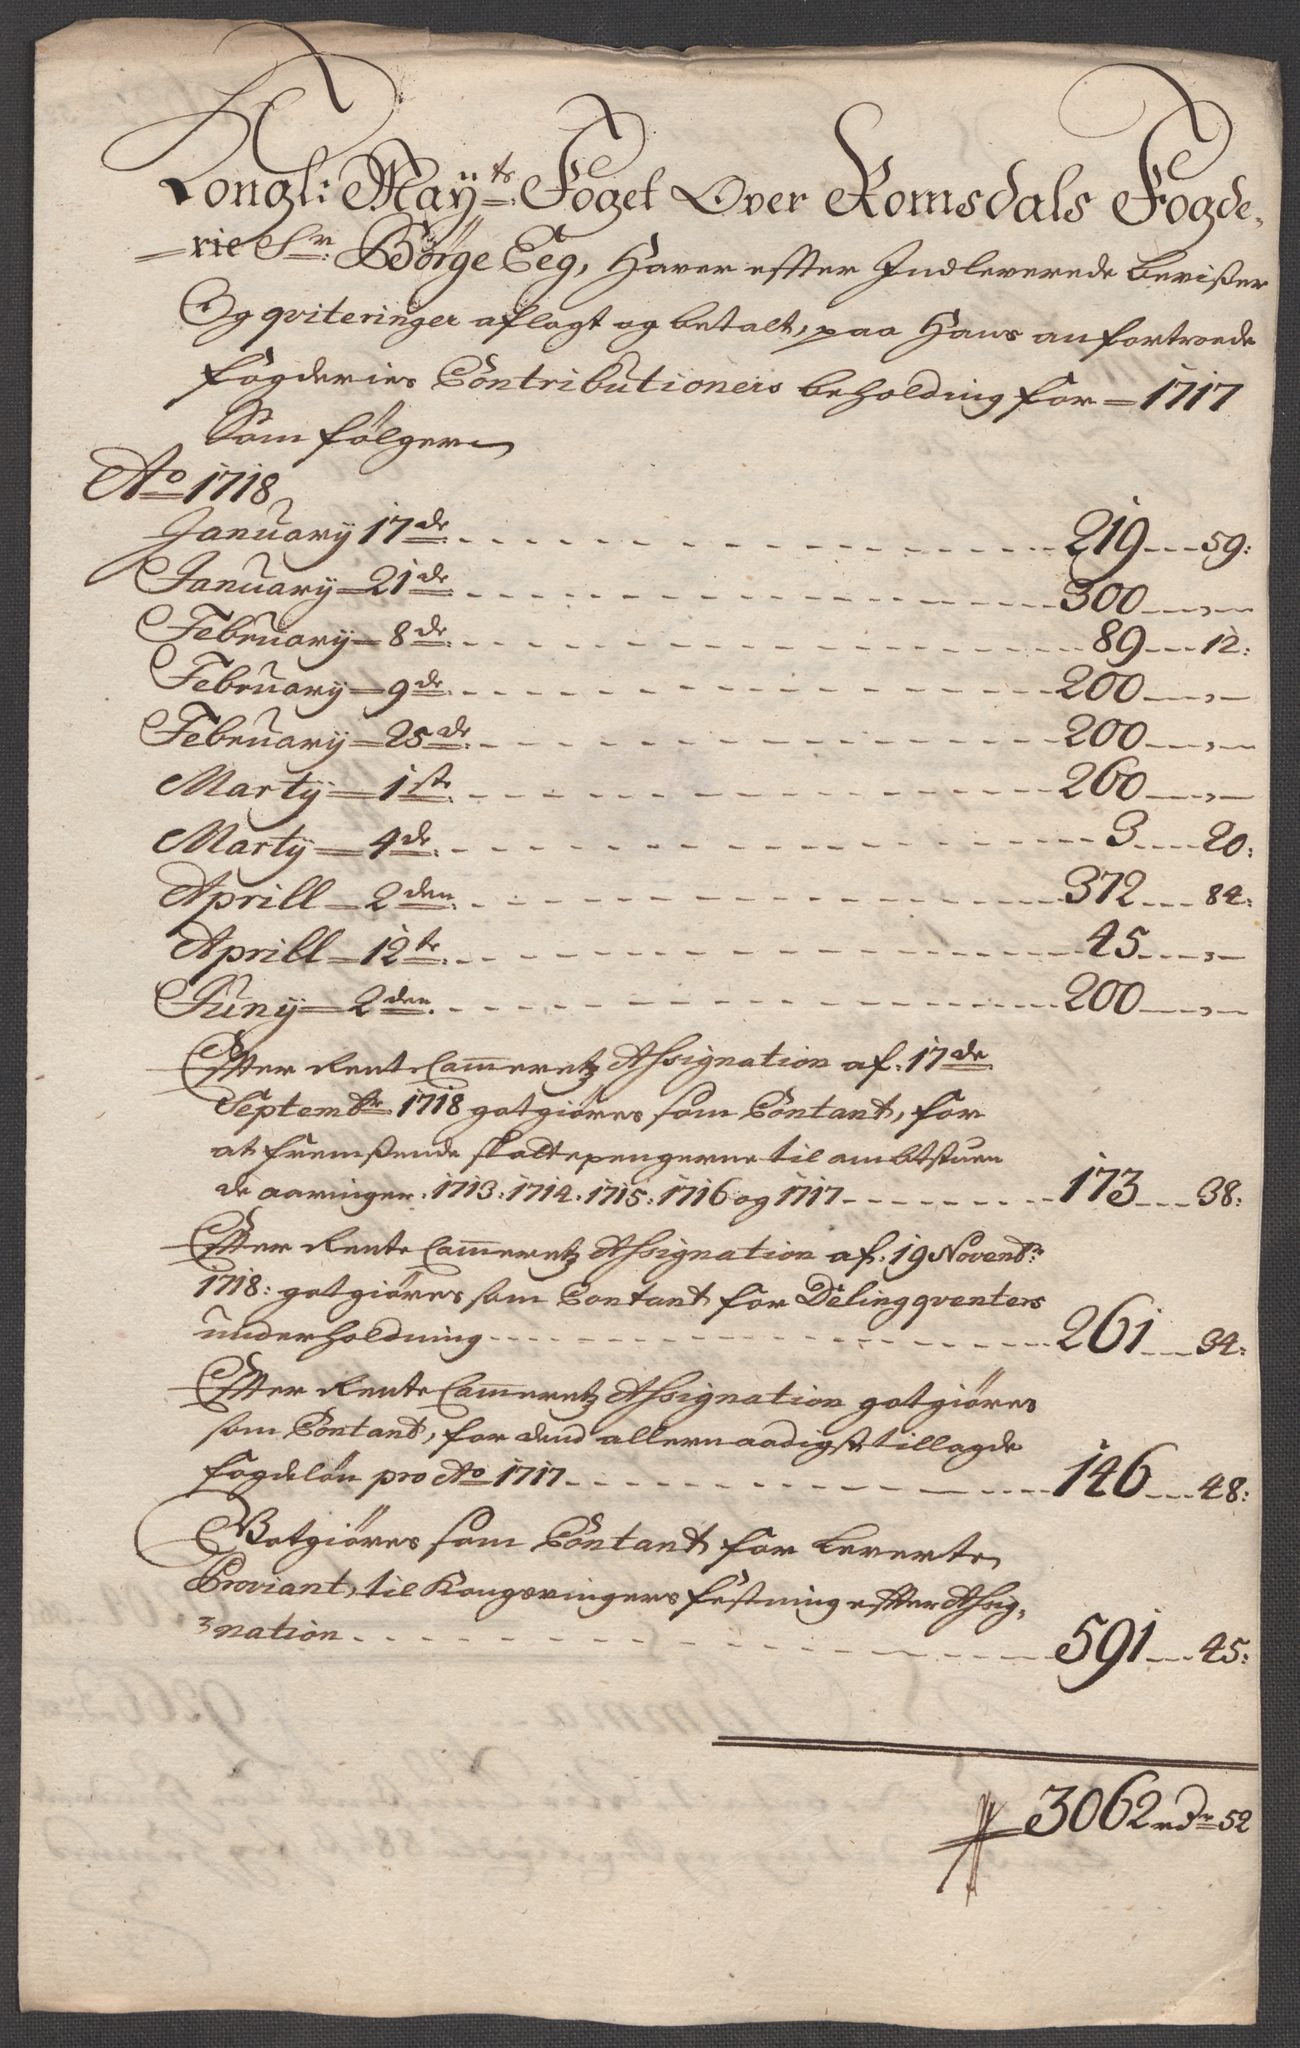 Kongl: Mayts Foget Over Romsdals Fogde-
rie Sr Børge Eeg, Haver effter Indleverede beviser
Og qviteringer aflagt og betalt, paa Hans anfortroede
fogderies Contributioners beholding for 1717
Som følger
Ao 1718
January 17de 219 59:
January 21de 300 "
February 8de 89 12:
February 9de 200 "
February 25de 200 "
Marty 1ste 260 "
Marty 4de 3 20:
Aprill 2den 372 84:
Aprill 12te 45 "
Juny 2den 200 "
Effter Rente Cammeretz Assignation af 17de
Septembr 1718 gotgiøres som Contant, for
at fremsende skattepengerne til ambtstuen
de aaringer 1713: 1714: 1715: 1716 og 1717 173 38:
Effter Rente Cammeretz Assignation af 19 Novembr
1718: gotgiøres som Contant for Delinqqventers
underholdning 261 34:
Effter Rente Cammeretz Assignation gotgiøres
som Contant, for dend allernaadigst tillagde
fogdeløn pro Ao 1717 146 48:
Gotgiøres som Contant for Leverte
Proviant, til Kongsvingers festning effter Assig-
nation 591 45:
3062 rdr 52